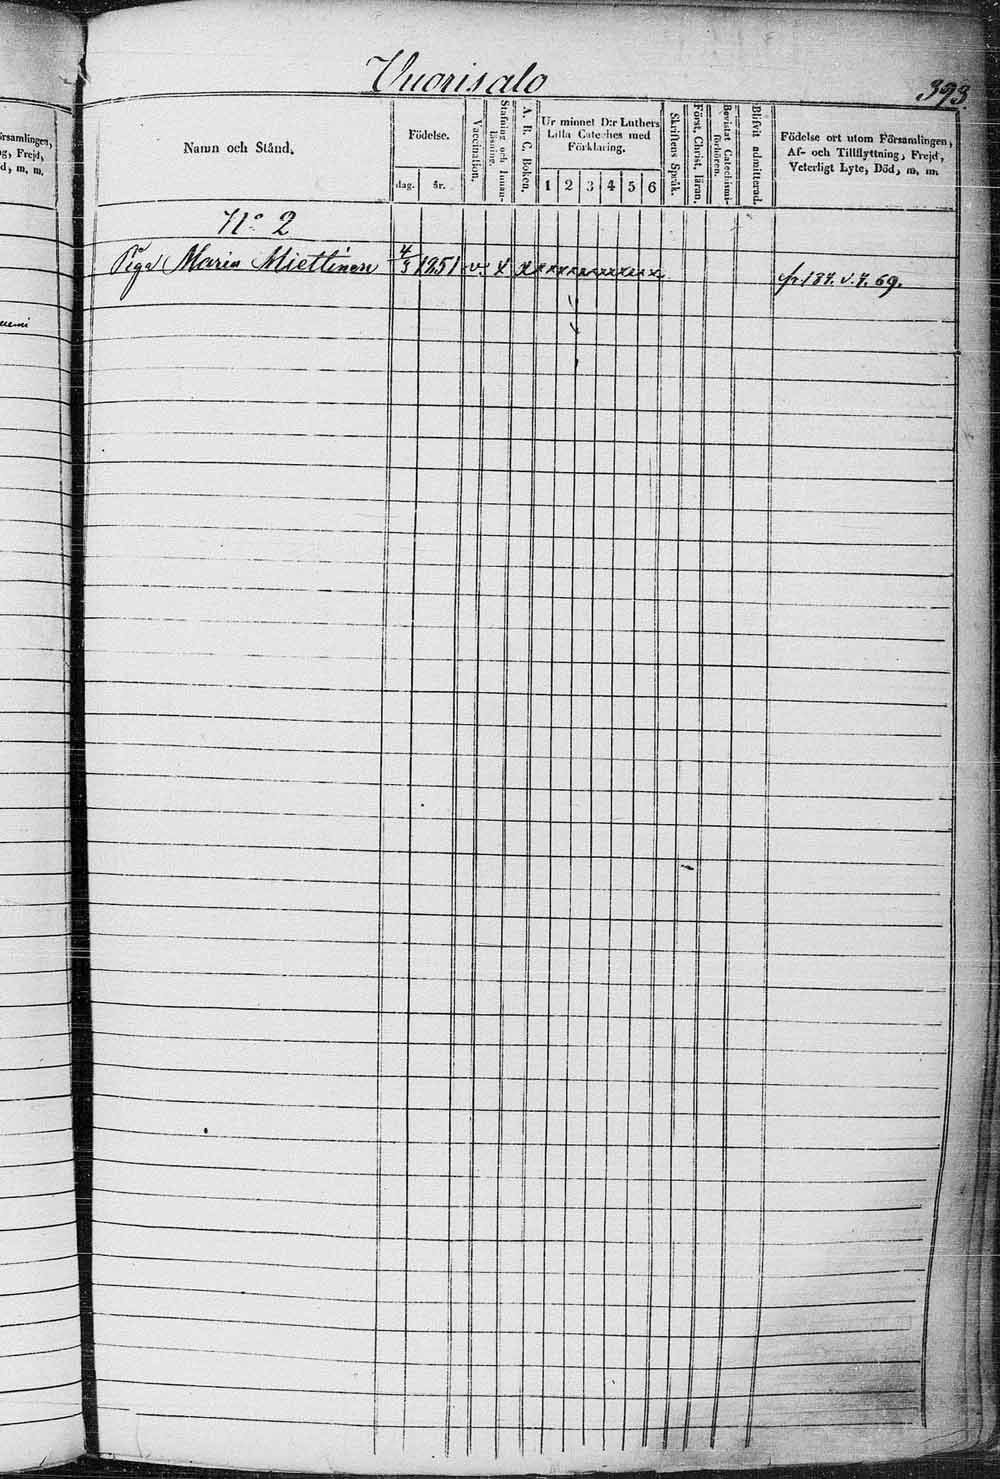 Vuorisalo
393.
Namn och Stånd.
Födelse.
dag.
år.
Vaccination.
Stafning och Innan-
läsning.
A. B. C. Boken.
Ur minnet D:r Luthers
Lilla Cateches med
Förklaring.
1 2 3 4 5 6
Skriftens Språk.
Först. Christ. läran.
Bevistat Catechismi-
förhören.
Blifvit admitterad.
Födelse ort utom Församlingen,
Af- och Tillflyttning, Frejd,
Veterligt Lyte, Död, m. m.
No 2
Piga Maria Miettinen 4/3 1851 v. x x x x x x x x x x x x x x fr. 187. v. 7. 69.